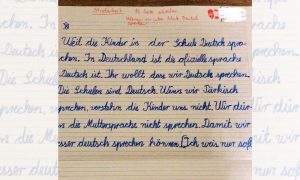 Strafarbeit
38
Weil die Kinder in der Schule Deutsch spra-
chen. In Deutschland ist die ofizielle sprache
Deutsch ist. Ihr wollt dass wir Deutsch sprechen.
Die Schulen sind Deutsch. Wenn wir Türkisch
sprechen, verstehn die Kinder uns nicht. Wir dür-
en die Muttersprache nicht sprechen. Damit wir
sser deutsch sprechen können. Ich weis nur so